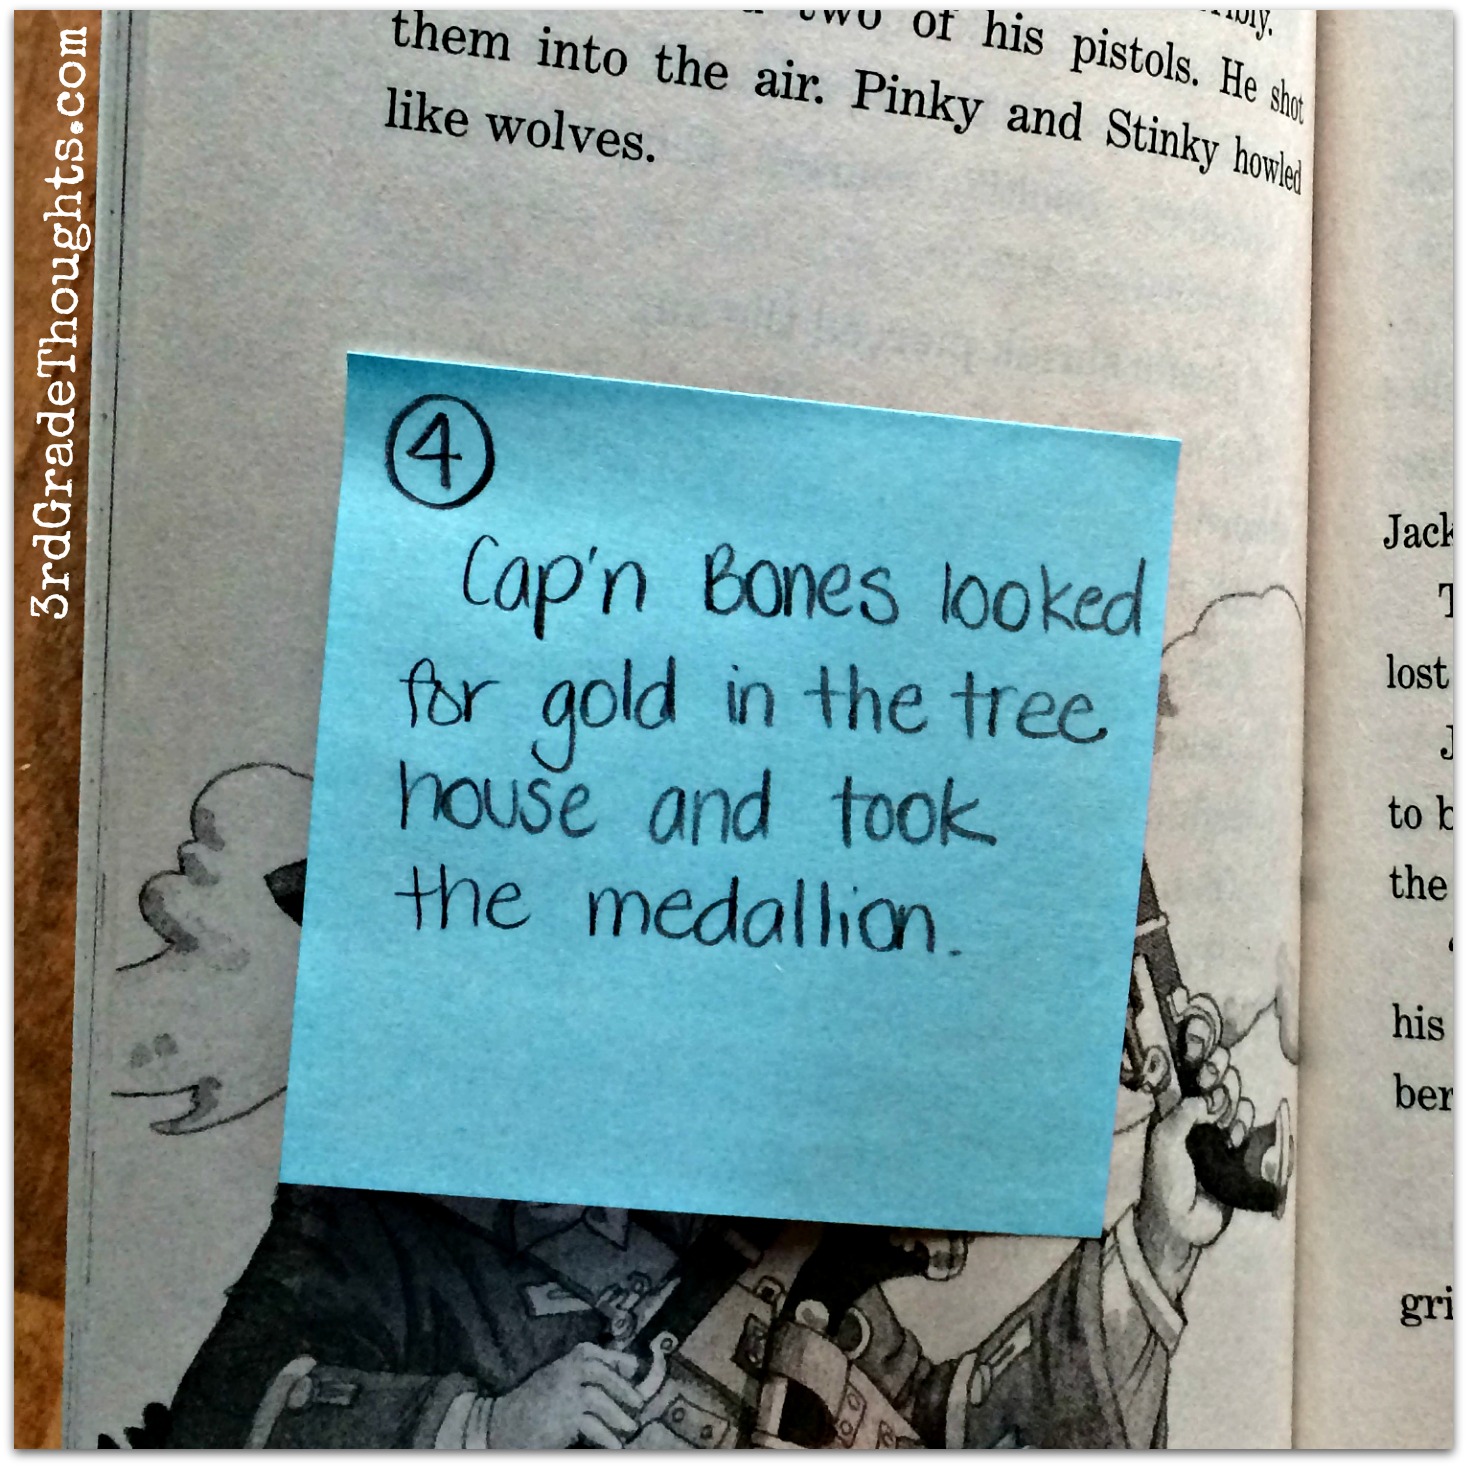 3rdGradeThoughts.com
two of his pistols. He shot
them into the air. Pinky and Stinky howled
like wolves.
4
Cap'n Bones looked
for gold in the tree
house and took
the medallion.
lost
to b
the
his